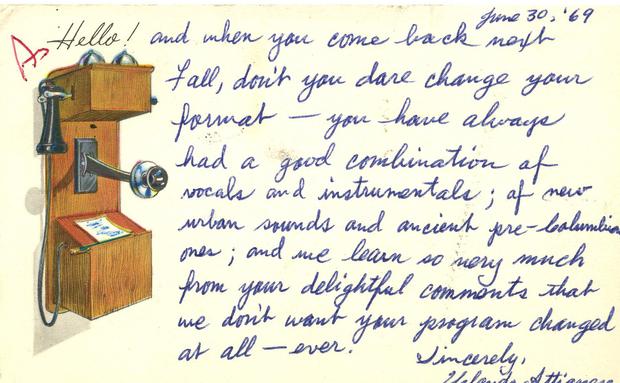 June 30, '69
A
Hello! and when you come back next
Fall, don't you dare change your
format — you have always
had a good combination of
vocals and instrumentals; of new
urban sounds and ancient pre-Columbian
ones; and we learn so very much
from your delightful comments that
we don't want your program changed
at all — ever.
Sincerely,